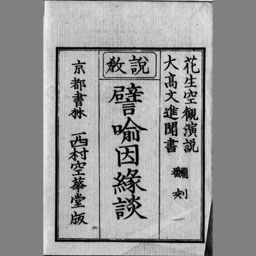 花生空観演説
大髙文進聞書
翻刻
説教
譬喩因縁談
京都書林 西村空華堂版